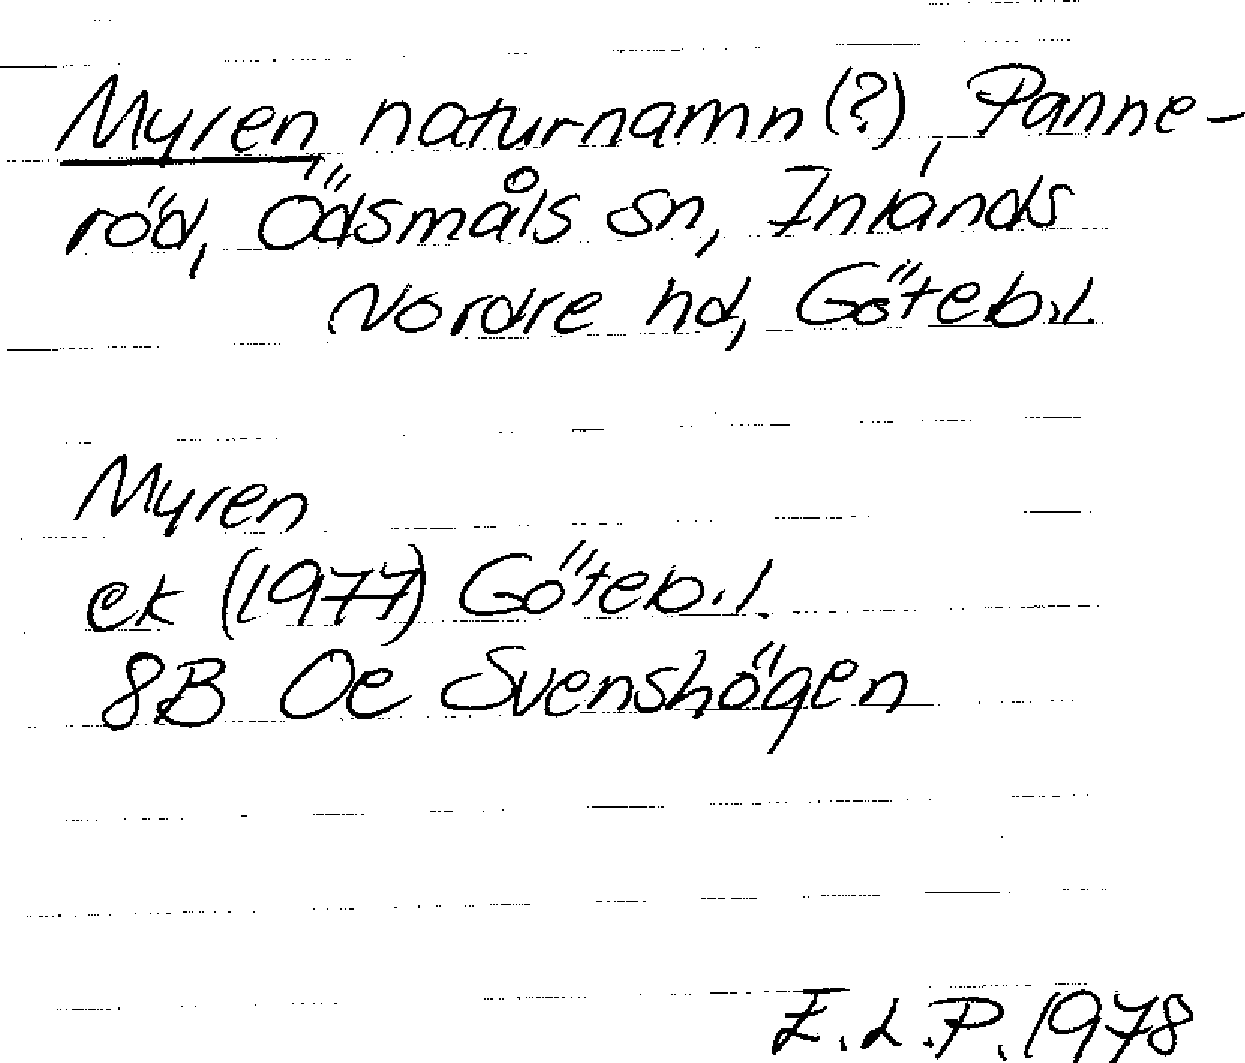 Myren, naturnamn (?), Panne-
röd, Ödsmåls sn, Inlands
Nordre hd, Göteb.l.
Myren
ek (1977) Göteb.l.
8B 0e Svenshögen
E.L.P. 1978